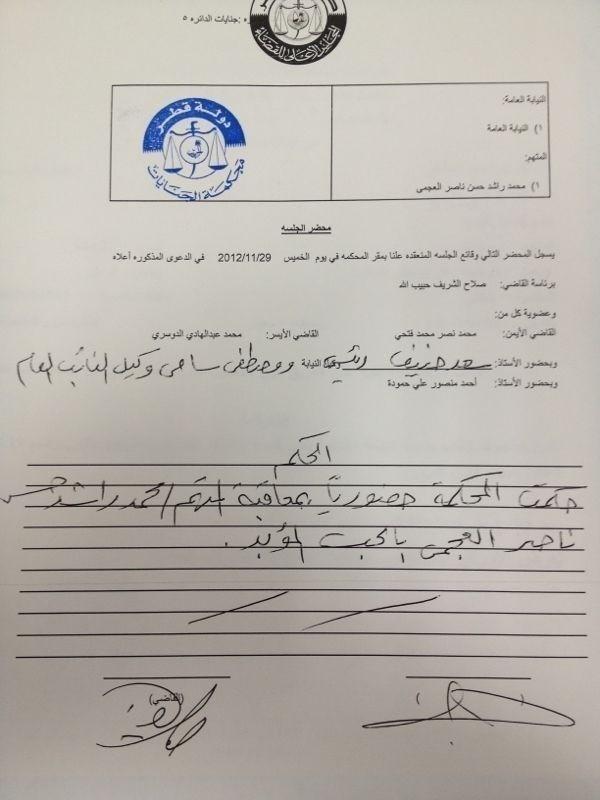 المجلس الأعلى للقضاء
جنايات الدائره ٥
النيابة العامة:
١) النيابة العامة
المتهم:
١) محمد راشد حسن ناصر العجمى
دولة قطر
محكمة الجنايات
محضر الجلسه
يسجل المحضر التالي وقائع الجلسه المنعقده علنا بمقر المحكمه في يوم الخميس 2012/11/29 في الدعوى المذكوره أعلاه
برئاسة القاضي: صلاح الشريف حبيب الله
وعضوية كل من:
القاضي الأيمن: محمد نصر محمد فتحي القاضي الأيسر: محمد عبدالهادي الدوسري
وبحضور الأستاذ: سعد النيابة ومصطفى سامى وكيل النائب العام
وبحضور الأستاذ: أحمد منصور علي حمودة
الحكم
حكمت المحكمة حضورياً بمعاقبة المتهم / محمد راشد حسن
ناصر العجمى بالحبس المؤبد.
(القاضي)